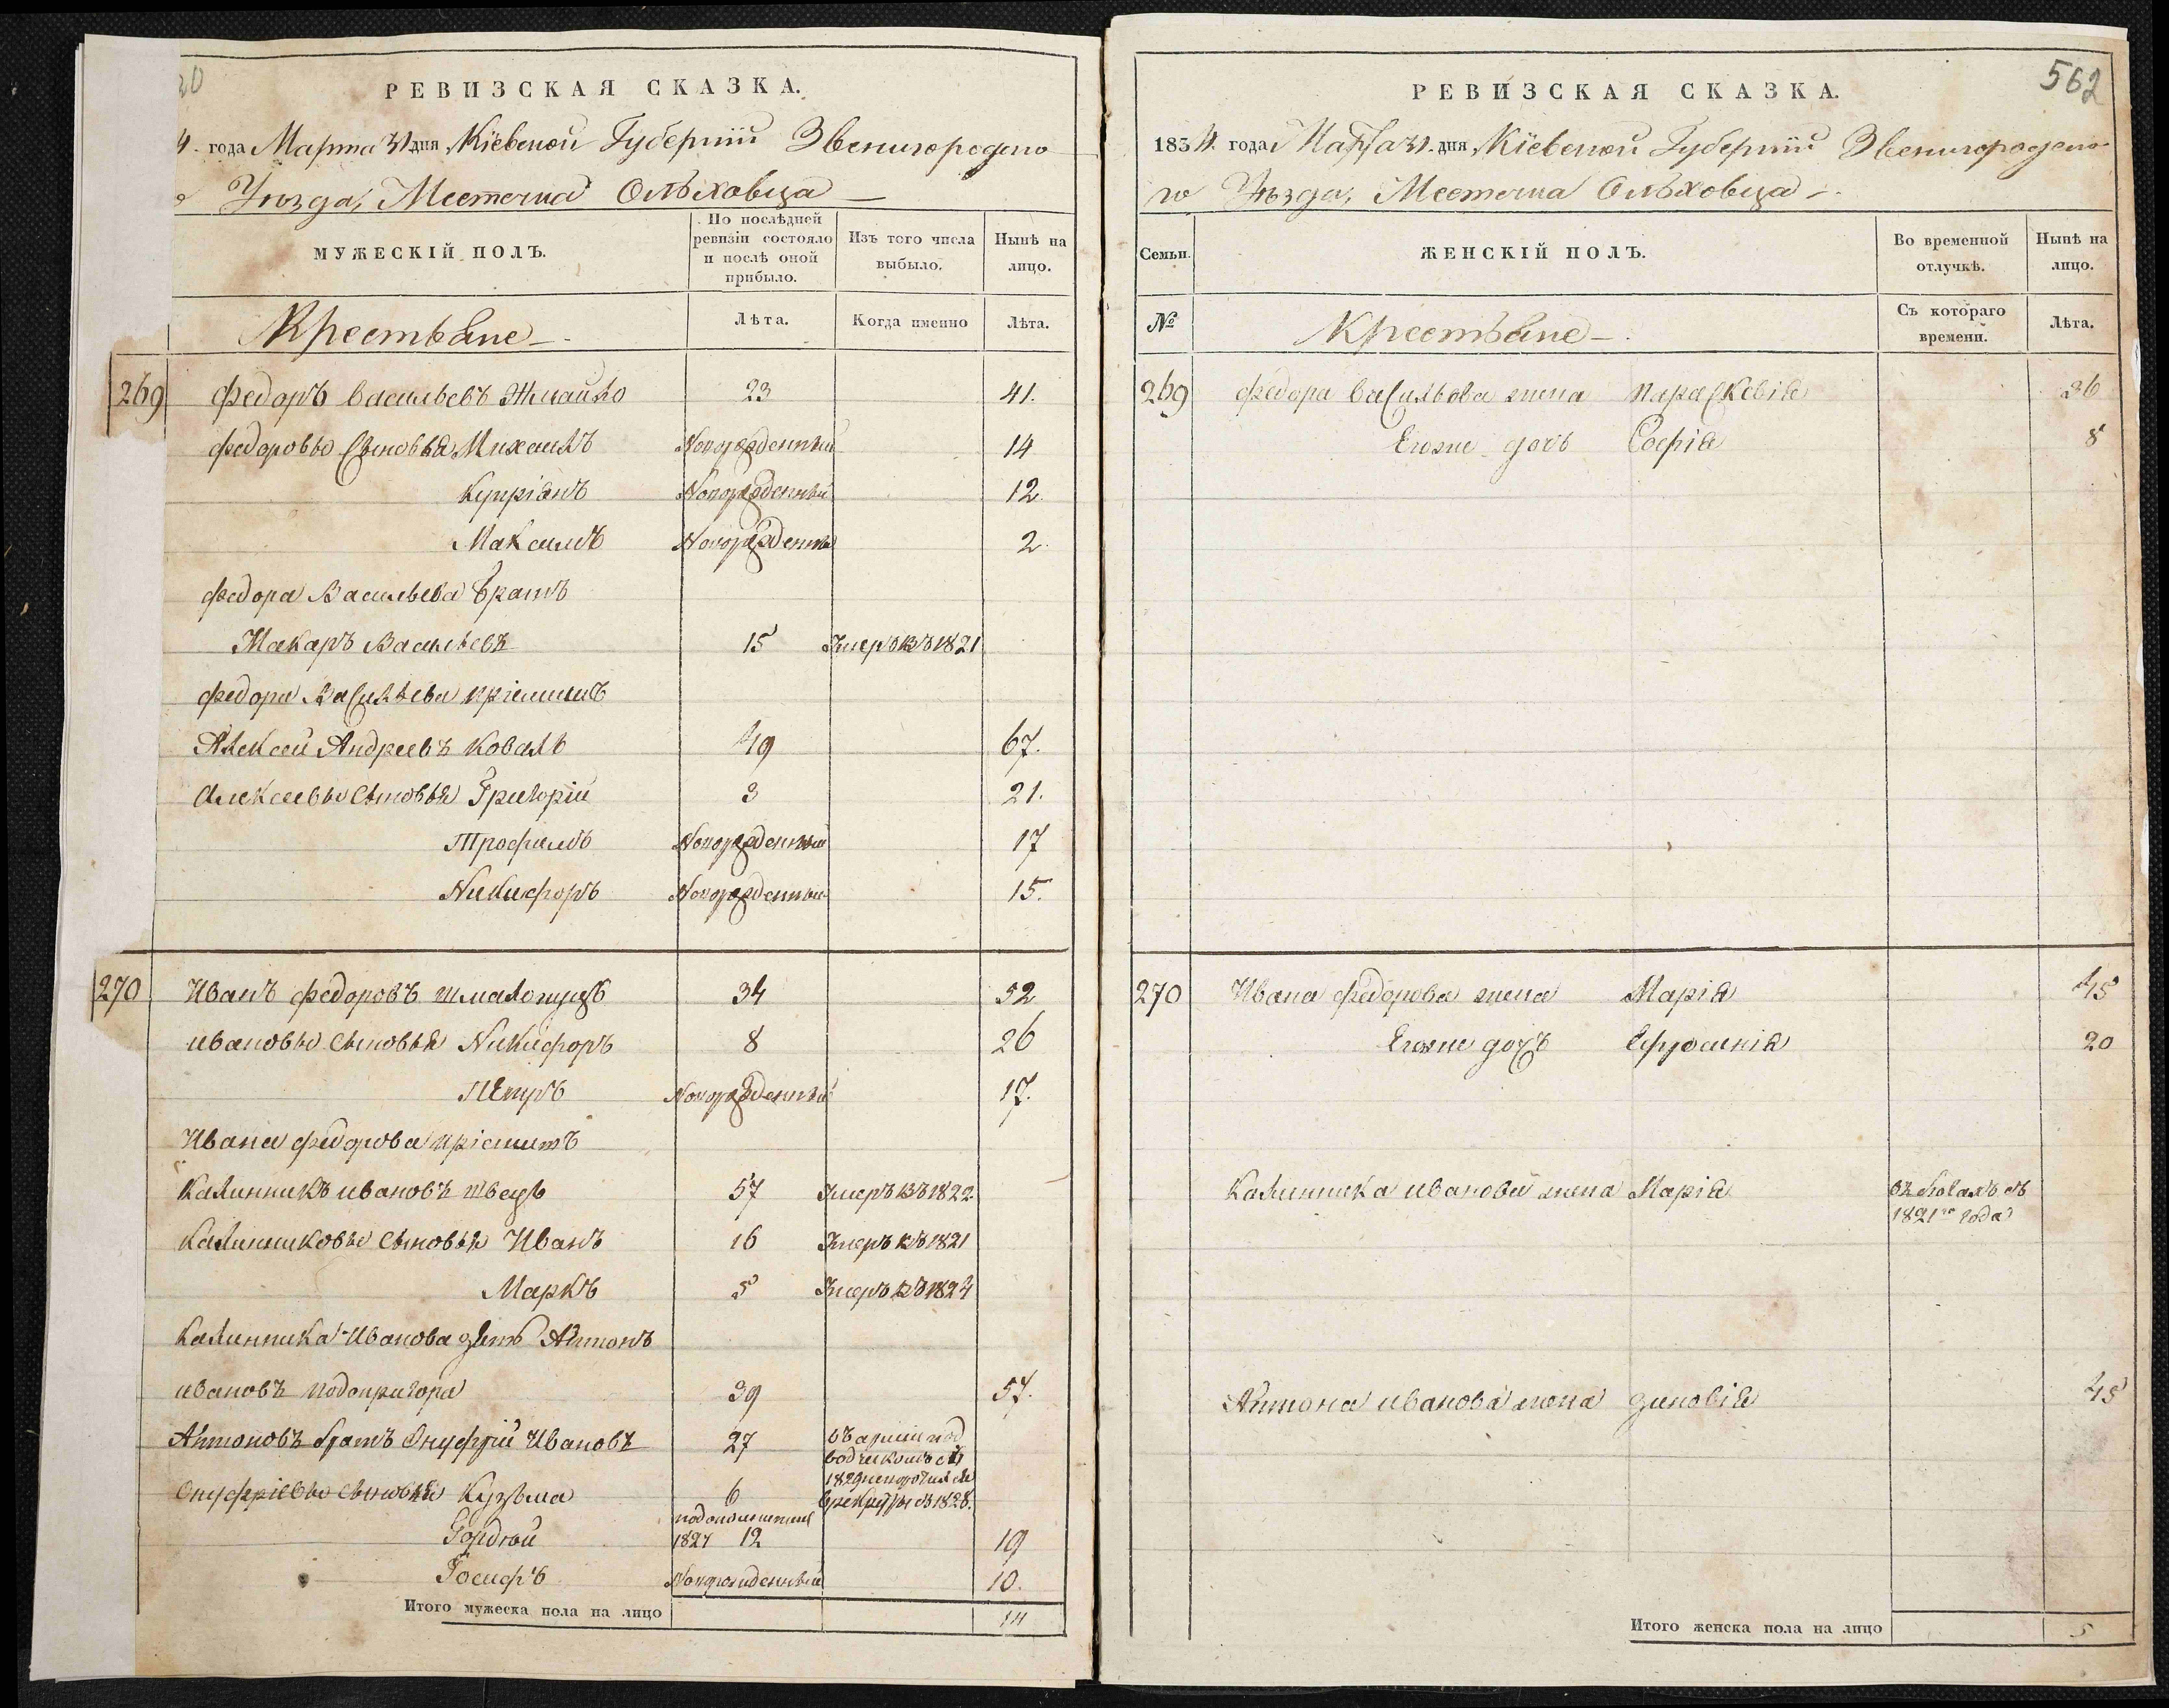 20
РЕВИЗСКАЯ СКАЗКА.
4. года Марта 31 дня Кіевской Губерніи Звенигородско
Уѣзда, Местечка Ольховца
МУЖЕСКІЙ ПОЛЪ.
По послѣдней ревизіи состояло и послѣ оной прибыло.
Изъ того числа выбыло.
Нынѣ на лицо.
Крестьяне
Лѣта.
Когда именно
Лѣта.
269 Федоръ Васильевъ Жмайло 23 41.
Федоровы Сыновья Михаилъ Новорожденный 14
Купріянъ Новорожденный 12.
Максимъ Новорожденный 2.
Федора Васильева братъ
Макаръ Васильевъ 15 Умеръ въ 1821
Федора Васильева пріемышъ
Алексей Андреевъ Коваль 49 67.
Алексеевы Сыновья Григорій 3 21.
Трофимъ Новорожденный 17
Никифоръ Новорожденный 15.
270 Иванъ Федоровъ 34 52
Ивановы Сыновья Никифоръ 8 26
Петръ Новорожденный 17.
Ивана Федорова пріемышъ
Калинникъ Ивановъ Швецъ 57 Умеръ въ 1822.
Калинниковы Сыновья Иванъ 16 Умеръ въ 1821
Маркъ 5 Умеръ въ 1824
Калинника Иванова зять Антонъ
Ивановъ Подопригора 39 57.
Антоновъ братъ Онуфрій Ивановъ 27 въ арміи под
водчикомъ съ
1829
Онуфріевы Сыновья Кузьма 6 в рекруты въ 1828.
Гордѣй 1827 12 19
Іосифъ Новорожденный 10.
Итого мужеска пола на лицо 14
562
РЕВИЗСКАЯ СКАЗКА.
1834. года Марта 31. дня Кіевской Губерніи Звенигородско
го Уѣзда, Местечка Ольховца
Семьи.
ЖЕНСКІЙ ПОЛЪ.
Во временной отлучкѣ.
Нынѣ на лицо.
№
Крестьяне
Съ котораго времени.
Лѣта.
269 Федора Васильева жена Параскевія 36
Егоже дочь Софія 8
270 Ивана Федорова жена Марія 45
Егоже дочь Ефросинія 20
Калинника Иванова жена Марія
1821го года
Антона Иванова жена Зиновія 45
Итого женска пола на лицо 5